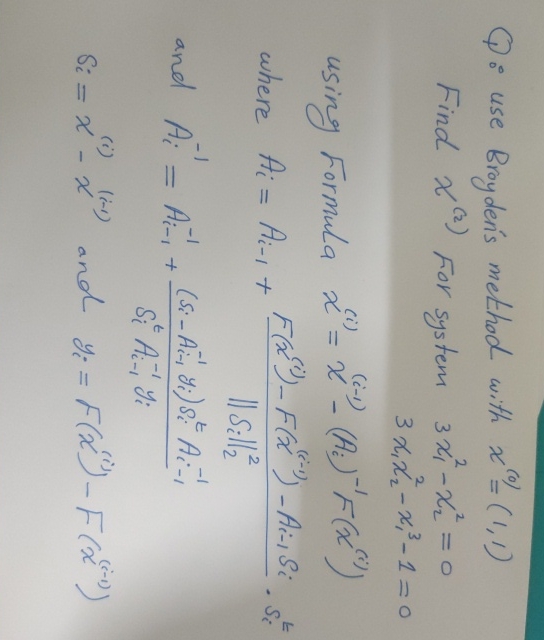 Q: use Broyden's method with x^(0) = (1,1)
Find x^(2) For system 3x₁² - x₂² = 0
3x₁x₂² - x₁³ - 1 = 0
using Formula x^(i) = x^(i-1) - (Ai)^-1 F(x^(i))
where Ai = Ai-1 + (F(x^(i)) - F(x^(i-1)) - Ai-1 Si) / ||Si||₂² · Si^t
and Ai^-1 = Ai-1^-1 + ((Si - Ai-1^-1 yi) Si^t Ai-1^-1) / (Si^t Ai-1^-1 yi)
Si = x^(i) - x^(i-1) and yi = F(x^(i)) - F(x^(i-1))